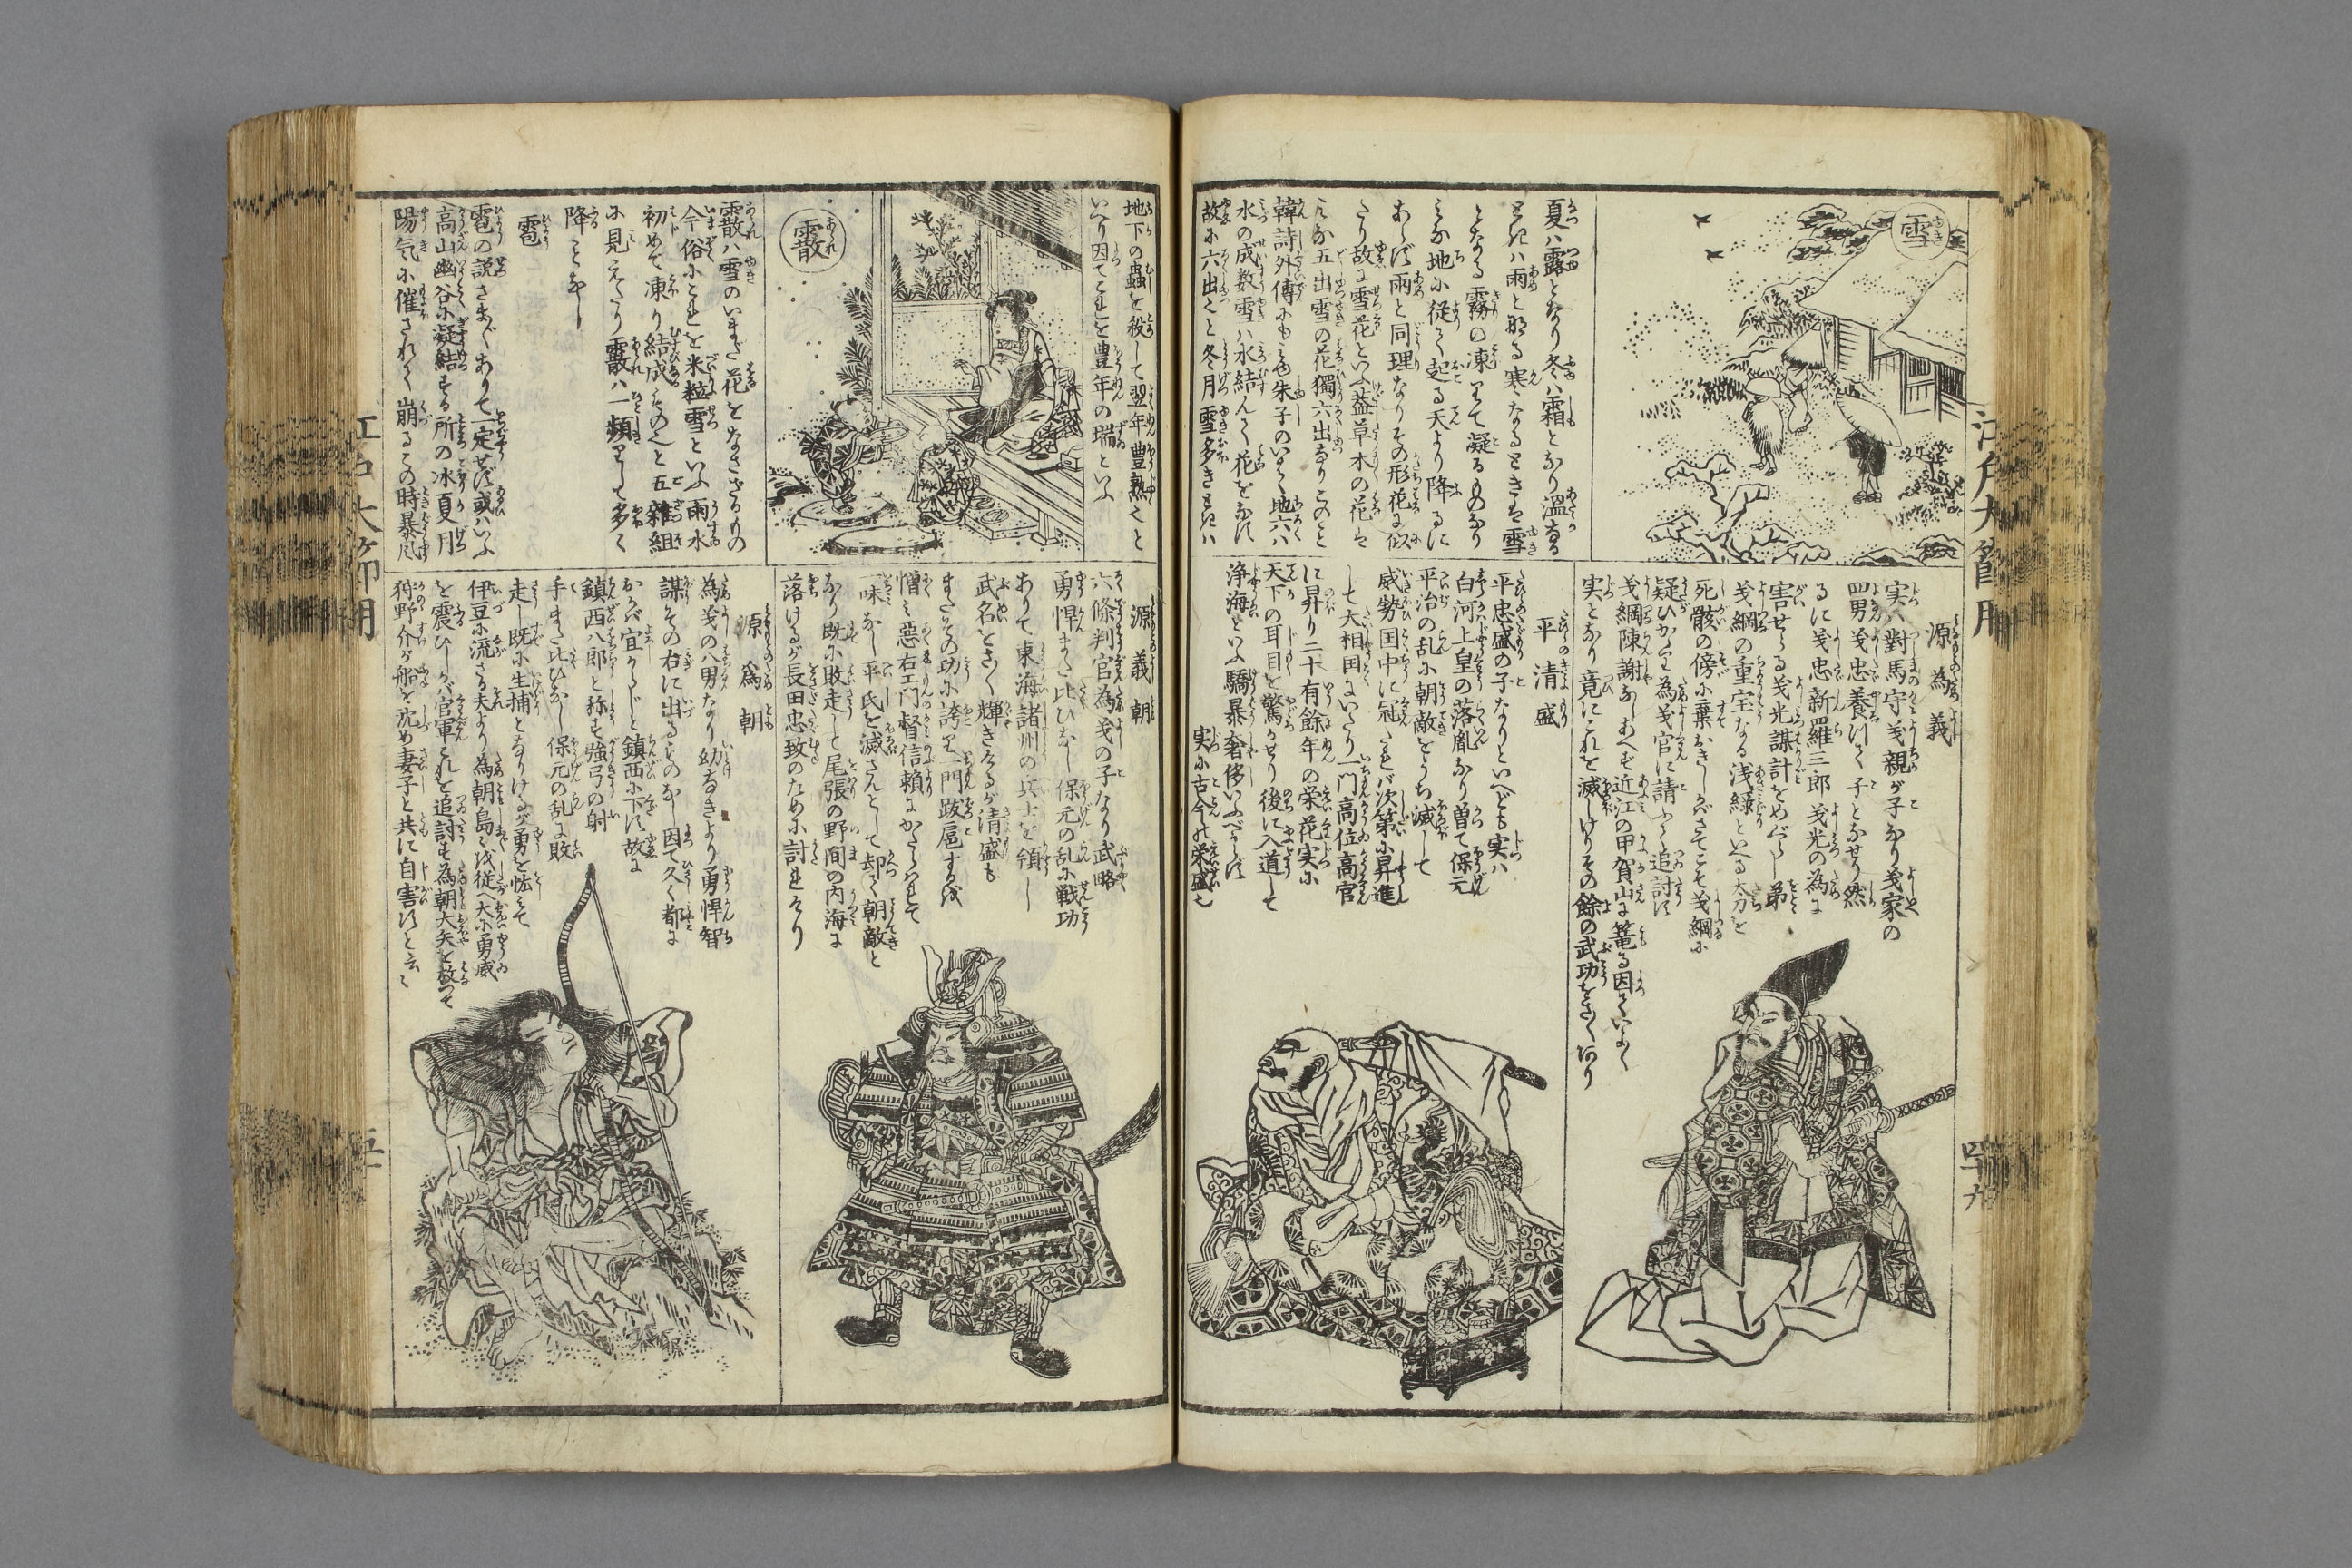 雪
夏ハ露となり冬ハ霜となり温なる
ときハ雨と那る寒なるときは雪
となる霧の凍りて凝るものなり
みな地に従て起る天より降るに
あらず雨と同理なりその形花に似
たり故に雪花といふ蓋草木の花は
みな五出雪の花獨六出なりこのこと
韓詩外傳にもみゆ朱子のいはく地六ハ
水の成数雪ハ水結んで花をなす
故に六出すと冬月雪多きときハ
源為義
実ハ對馬守義親が子なり義家の
四男義忠養ひて子となせり然
るに義忠新羅三郎義光の為に
害せらる義光謀計をめぐらし弟
義綱の重宝なる浅緑といへる太刀を
死骸の傍に棄おきしかばさてこそ義綱に
疑ひかゝり為義官に請ふて追討す
義綱陳謝なしあへず近江の甲賀山に篭る因ていよく
実となり竟にこれを滅しけりその餘の武功をさくあり
平清盛
平忠盛の子なりといへども実ハ
白河上皇の落胤なり曽て保元
平治の乱に朝敵をうち滅して
威勢国中に冠たれバ次第に昇進
して大相国にいたり一門高位高官
に昇り二十有餘年の栄花実に
天下の耳目を驚かせり後に入道して
浄海といふ驕暴奢侈いふべからず
実に古今の栄盛也
四十九
地下の蟲を殺して翌年豊熟すと
いへり因てこれを豊年の瑞といふ
霰
霰ハ雪のいまだ花をなさざるもの
今俗にこれを米粒雪といふ雨水
初めて凍り結成ものと五雜組
に見えたり霰ハ一頻りして多く
降ことなし
雹
雹の説さまざまありて一定せず或ハいふ
高山幽谷に凝結する所の冰夏月
陽気に催されて崩るこの時暴風
源義朝
六條判官為義の子なり武略
勇悍また比ひなし保元の乱に戦功
ありて東海諸州の兵士を領し
武名をさく輝きけるが清盛も
またその功に誇り一門跋扈するを
憎み惡右エ門督信頼にかたらはれて
一味なし平氏を滅さんとして却て朝敵と
なり既に敗走して尾張の野間の内海に
落けるが長田忠致のために討れたり
源為朝
為義の八男なり幼なきより勇悍智
謀その右に出るものなし因て久く都に
おかば宜からじと鎮西に下す故に
鎮西八郎と称す強弓の射
手また比ひなし保元の乱に敗
走し既に生捕となりけるが勇を怯えて
伊豆に流さる夫より為朝島々を従へ大に勇威
を震ひしが官軍これを追討す為朝大矢を放つて
狩野介が船を沈め妻子と共に自害すと云々